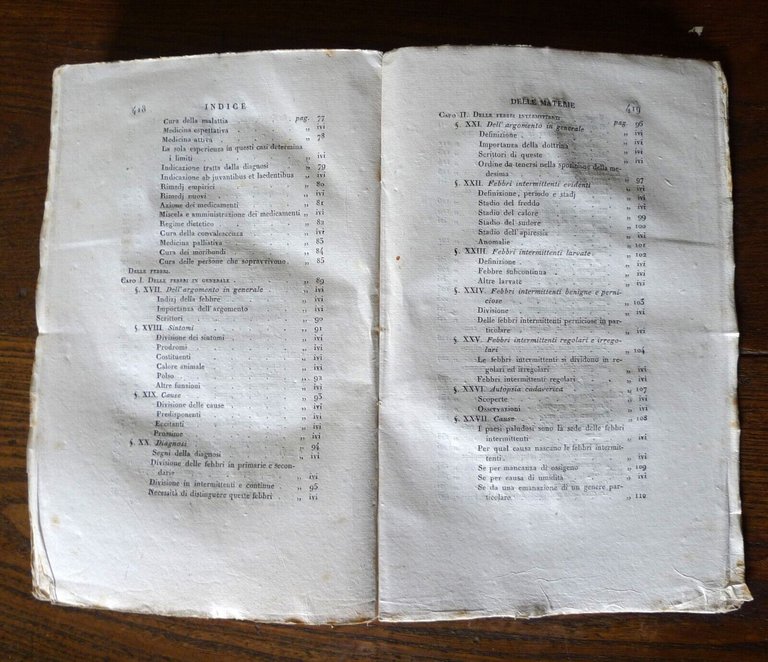 418 INDICE
Cura della malattia pag. 77
Medicina espettativa . „ ivi
Medicina attiva . „ 78
La sola esperienza in questi casi determina
i limiti „ ivi
Indicazione tratta dalla diagnosi „ 79
Indicazione ab juvantibus et laedentibus „ ivi
Rimedj empirici „ 80
Rimedj nuovi „ ivi
Azione dei medicamenti „ 81
Miscela e amministrazione dei medicamenti „ ivi
Regime dietetico „ 82
Cura della convalescenza „ ivi
Medicina palliativa „ 83
Cura dei moribondi „ 84
Cura delle persone che sopravvivono „ 85
DELLE FEBBRI.
CAPO I. DELLE FEBBRI IN GENERALE . „ 89
§. XVII. Dell'argomento in generale „ ivi
Indizj della febbre „ ivi
Importanza dell'argomento „ ivi
Scrittori „ 90
§. XVIII. Sintomi „ 91
Divisione dei sintomi „ ivi
Prodromi „ ivi
Costituenti „ ivi
Calore animale „ ivi
Polso „ 92
Altre funzioni „ ivi
§. XIX. Cause „ 93
Divisione delle cause „ ivi
Predisponenti „ ivi
Eccitanti „ ivi
Prossime „ ivi
§. XX. Diagnosi „ 94
Segni della diagnosi „ ivi
Divisione delle febbri in primarie e secon-
darie „ ivi
Divisione in intermittenti e continue „ 95
Necessità di distinguere queste febbri „ ivi
DELLE MATERIE 419
CAPO II. DELLE FEBBRI INTERMITTENTI
§. XXI. Dell'argomento in generale pag. 96
Definizione „ ivi
Importanza della dottrina „ ivi
Scrittori di queste „ ivi
Ordine da tenersi nella sposizione della me-
desima „ 97
§. XXII. Febbri intermittenti evidenti „ ivi
Definizione, periodo e stadj „ ivi
Stadio del freddo „ ivi
Stadio del calore „ 99
Stadio del sudore „ 100
Stadio dell'apiressia „ ivi
Anomalie „ 101
§. XXIII. Febbri intermittenti larvate „ 102
Definizione „ ivi
Febbre subcontinua „ ivi
Altre larvate „ ivi
§. XXIV. Febbri intermittenti benigne e perni-
ciose „ 103
Divisione „ ivi
Delle febbri intermittenti perniciose in par-
ticolare „ ivi
§. XXV. Febbri intermittenti regolari e irrego-
lari „ 104
Le febbri intermittenti si dividono in re-
golari ed irregolari „ ivi
Febbri intermittenti regolari „ ivi
§. XXVI. Autopsia cadaverica „ 107
Scoperte „ ivi
Osservazioni „ ivi
§. XXVII. Cause „ 108
I paesi paludosi sono la sede delle febbri
intermittenti „ ivi
Per qual causa nascano le febbri intermit-
tenti. „ ivi
Se per mancanza di ossigeno „ 109
Se per causa di umidità „ ivi
Se da una emanazione di un genere par-
ticolare „ 110